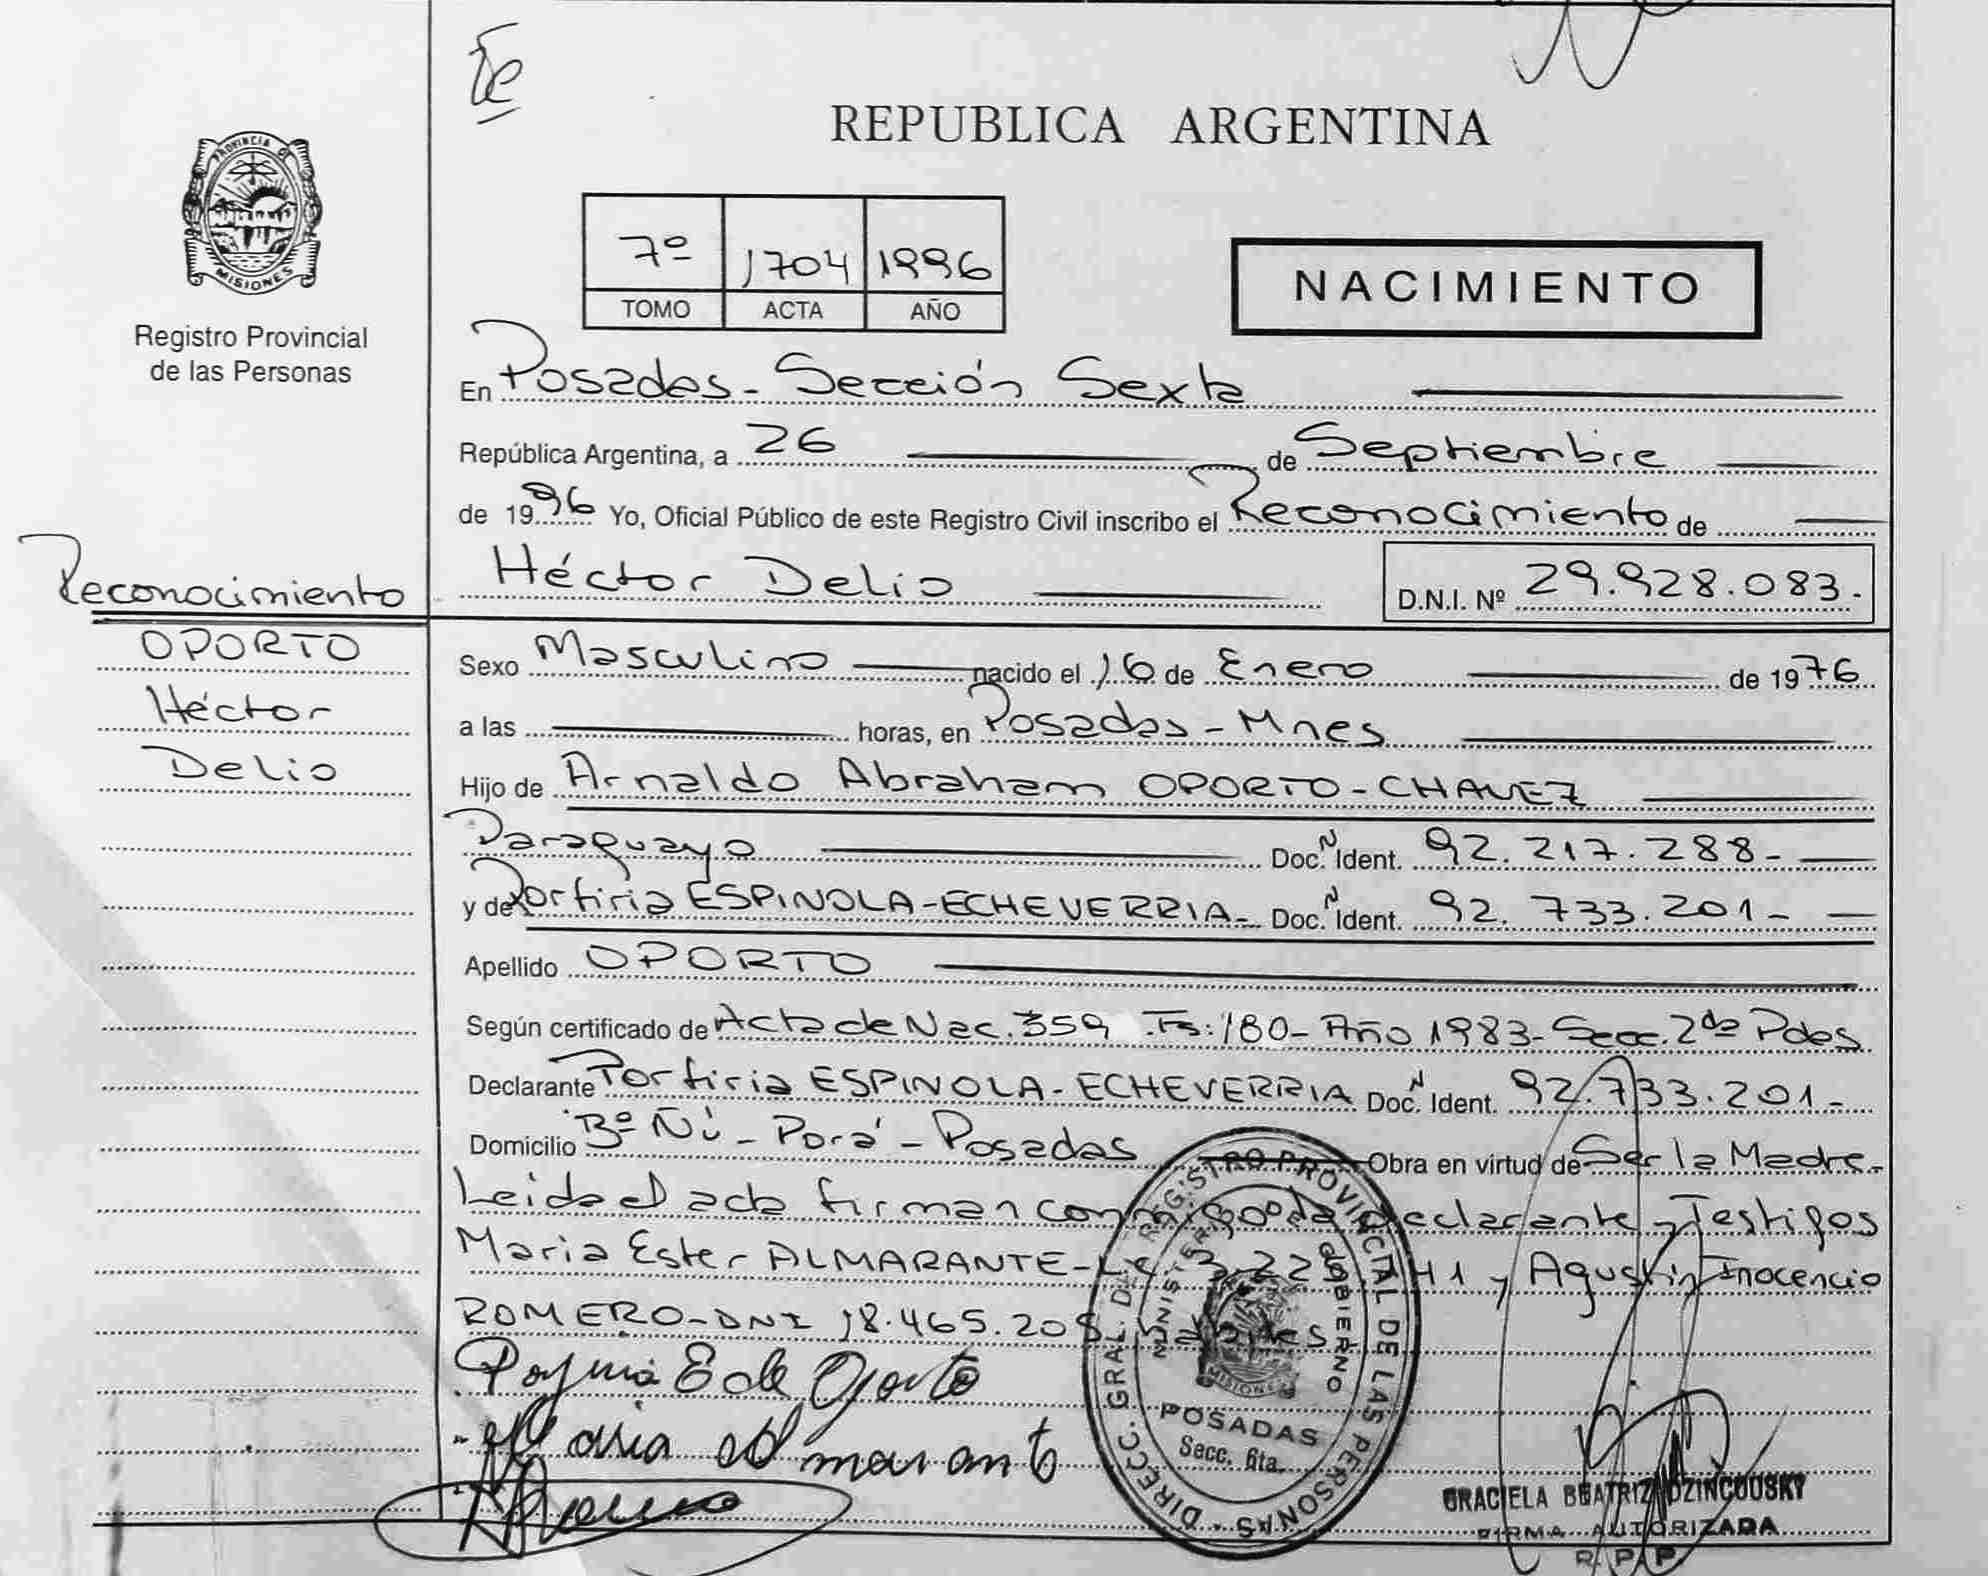 REPUBLICA ARGENTINA
PROVINCIA DE
MISIONES
Registro Provincial
de las Personas
7º 1704 1996
TOMO ACTA AÑO
NACIMIENTO
En Posadas - Sección Sexta
República Argentina, a 26 de Septiembre
de 1996 Yo, Oficial Público de este Registro Civil inscribo el Reconocimiento de
Héctor Delio D.N.I. Nº 29.928.083.-
Reconocimiento
OPORTO
Héctor
Delio
Sexo Masculino nacido el 16 de Enero de 1976
a las horas, en Posadas - Mnes
Hijo de Arnaldo Abraham OPORTO - CHAVEZ
Paraguayo Doc. N Ident. 92.217.288-
y de Porfiria ESPINOLA-ECHEVERRIA- Doc. N Ident. 92.733.201-
Apellido OPORTO
Según certificado de Acta de Nac. 359 Fs: 180 - Año 1983 - Secc. 2da Pdas
Declarante Porfiria ESPINOLA - ECHEVERRIA Doc. N Ident. 92.733.201-
Domicilio Bº Ñu - Porá - Posadas Obra en virtud de Ser la Madre.-
Leida el acta firman conmigo la declarante y Testigos
Maria Ester ALMARANTE - y Agustin Inocencio
ROMERO - DNI 18.465.208
Porfiria E de Oporto
Maria Almarante
DIRECC. GRAL. DEL REGISTRO PROVINCIAL DE LAS PERSONAS
MINISTERIO DE GOBIERNO
MISIONES
POSADAS
Secc. 6ta.
GRACIELA BEATRIZ DZINCOUSKY
FIRMA AUTORIZADA
R. P. P.